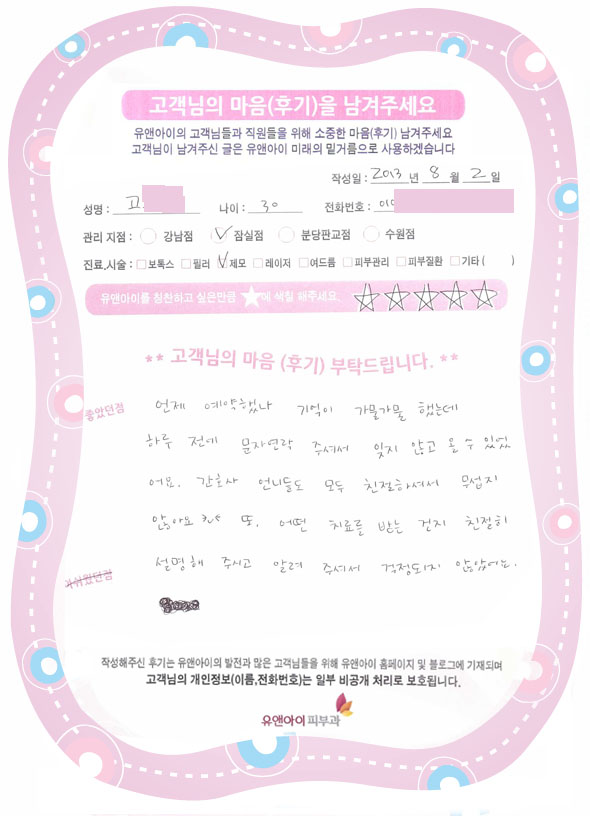 고객님의 마음(후기)을 남겨주세요
유앤아이의 고객님들과 직원들을 위해 소중한 마음(후기) 남겨주세요
고객님이 남겨주신 글은 유앤아이 미래의 밑거름으로 사용하겠습니다
작성일 : 2013 년 8 월 2 일
성명 : 고 나이 : 30 전화번호 : 010
관리 지점 : 강남점 잠실점 분당판교점 수원점
진료,시술 : 보톡스 필러 제모 레이저 여드름 피부관리 피부질환 기타 ( )
유앤아이를 칭찬하고 싶은만큼 ★에 색칠 해주세요.
** 고객님의 마음 (후기) 부탁드립니다. **
좋았던점
언제 예약했나 기억이 가물가물 했는데
하루 전에 문자연락 주셔서 잊지 않고 올 수 있었
어요. 간호사 언니들도 모두 친절하셔서 무섭지
않아요 ㅋㅋ 또, 어떤 치료를 받는 건지 친절히
설명해 주시고 알려 주셔서 걱정되지 않았어요.
아쉬웠던점
작성해주신 후기는 유앤아이의 발전과 많은 고객님들을 위해 유앤아이 홈페이지 및 블로그에 기재되며
고객님의 개인정보(이름,전화번호)는 일부 비공개 처리로 보호됩니다.
유앤아이 피부과